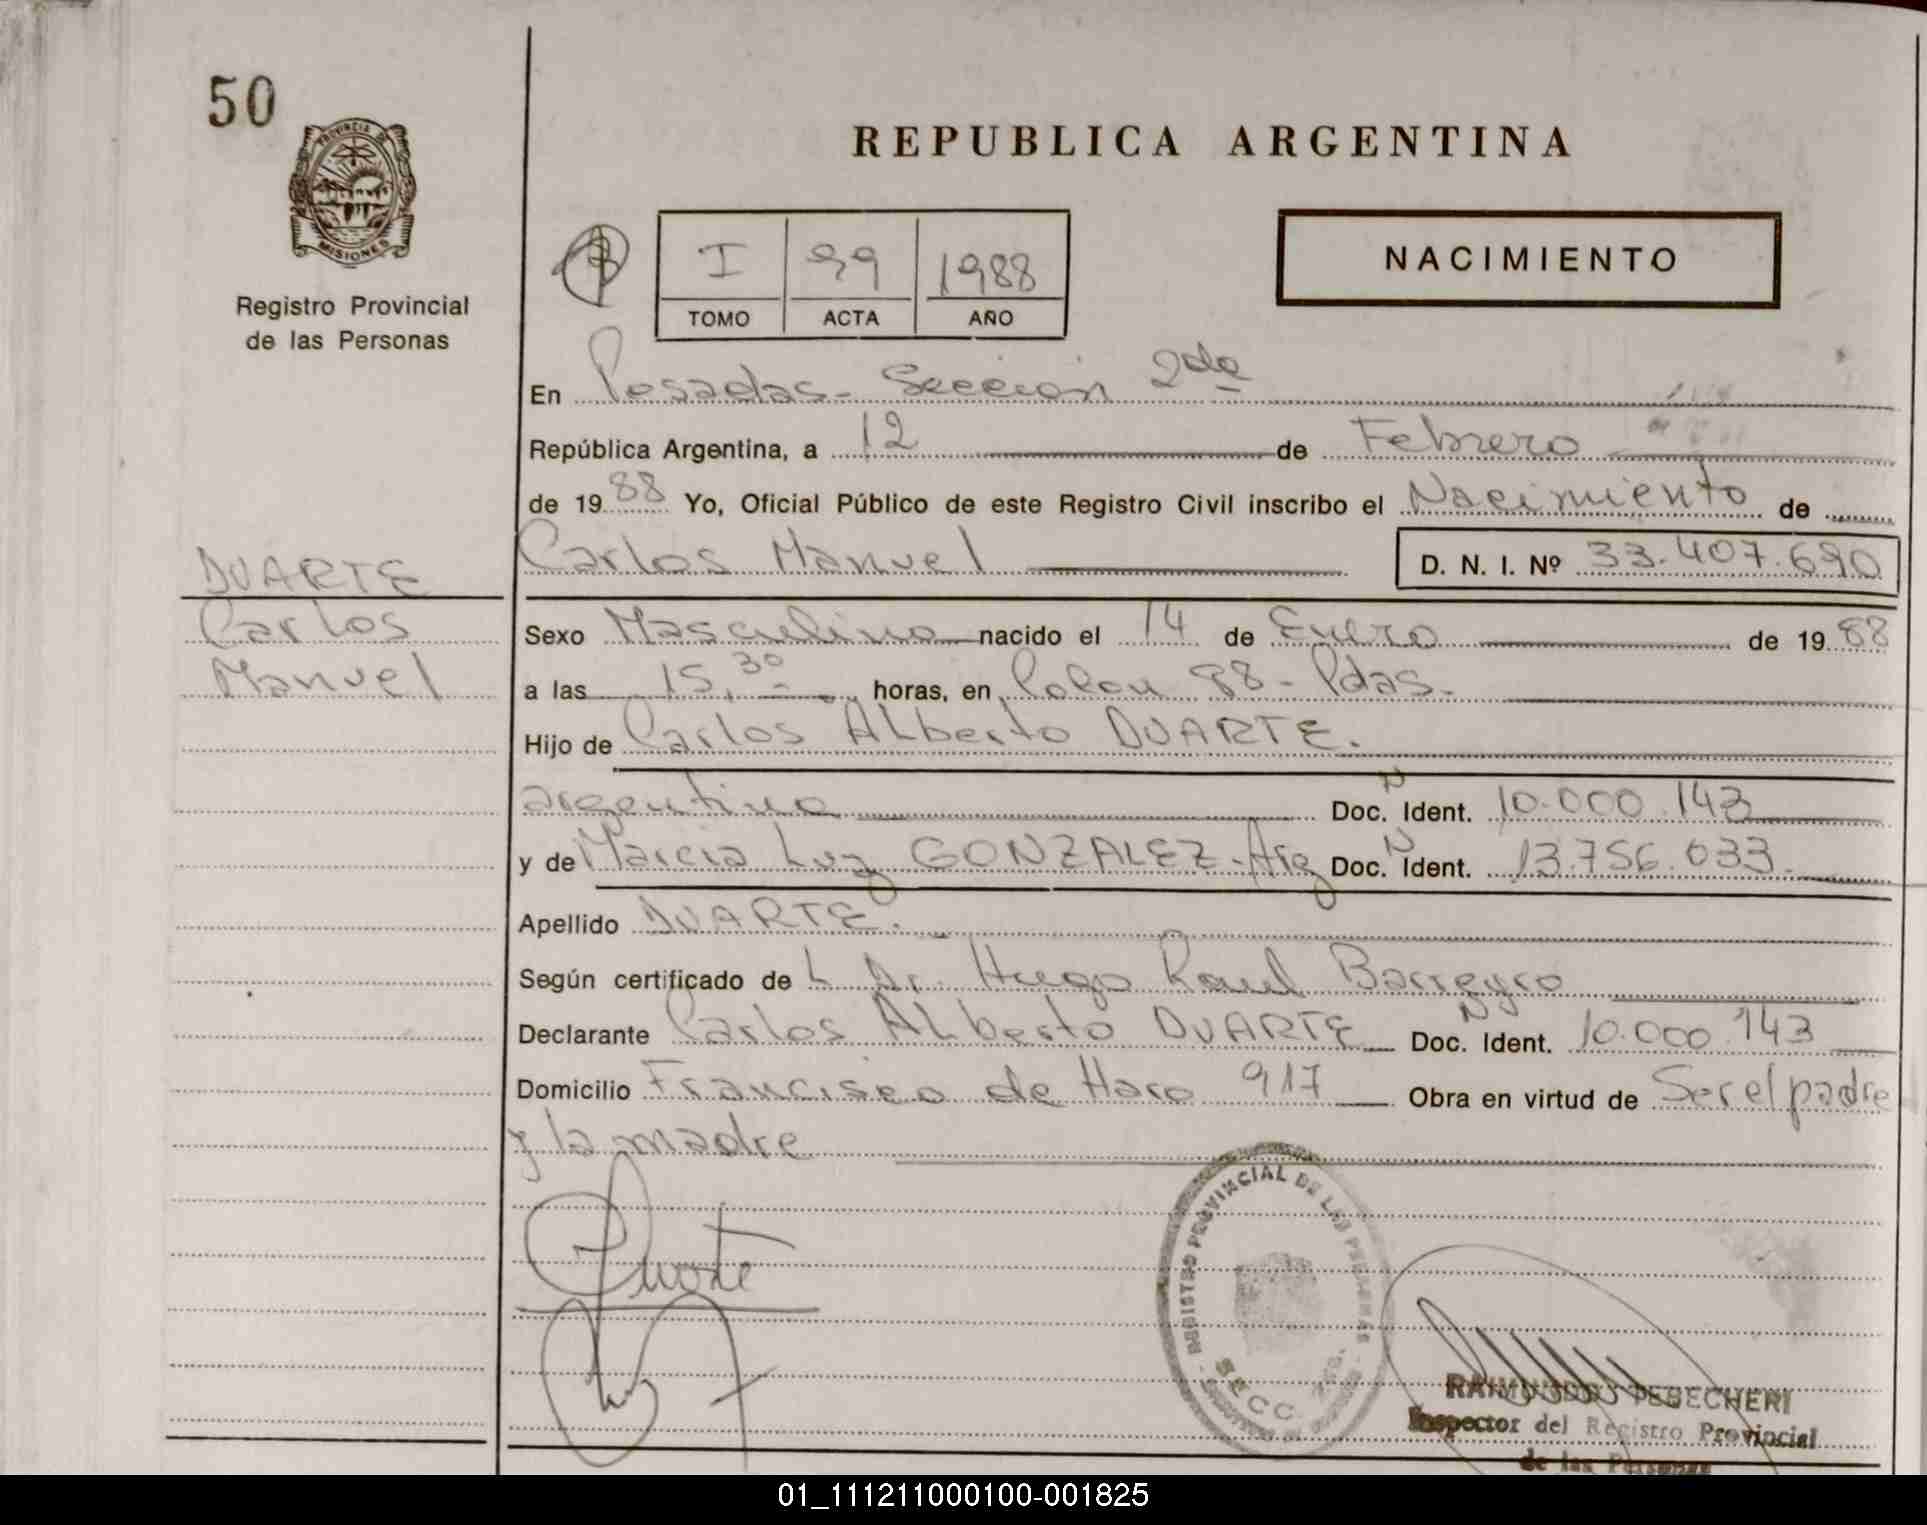 50
PROVINCIA DE
MISIONES
Registro Provincial
de las Personas
REPUBLICA ARGENTINA
I 99 1988
TOMO ACTA AÑO
NACIMIENTO
En Posadas - Sección 2da
República Argentina, a 12 de Febrero
de 1988 Yo, Oficial Público de este Registro Civil inscribo el Nacimiento de
Carlos Manuel D. N. I. Nº 33.407.690
DUARTE
Carlos
Manuel
Sexo Masculino nacido el 14 de Enero de 1988
a las 15,30 horas, en Colon 98 - Pdas.
Hijo de Carlos ALberto DUARTE.
argentino Doc. N Ident. 10.000.143
y de Marcia Luz GONZALEZ - Arg Doc. N Ident. 13.756.033.
Apellido DUARTE.
Según certificado de L Dr. Hugo Raul Barreyro
Declarante Carlos ALberto DUARTE Doc. N Ident. 10.000.143
Domicilio Francisco de Haro 917 Obra en virtud de Ser el padre
y la madre
Duarte
REGISTRO PROVINCIAL DE LAS PERSONAS
SECC.
RAIMUNDO TEBECHERI
Inspector del Registro Provincial
de las Personas
01_111211000100-001825